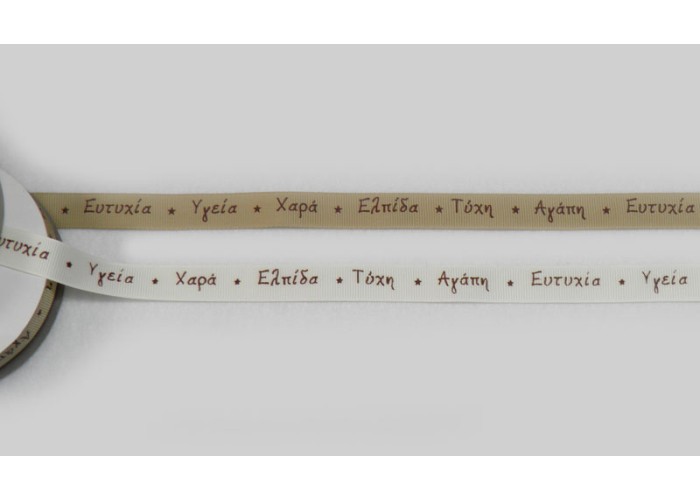 ★ Ευτυχία ★ Υγεία ★ Χαρά ★ Ελπίδα ★ Τύχη ★ Αγάπη ★ Ευτυχία
υτυχία ★ Υγεία ★ Χαρά ★ Ελπίδα ★ Τύχη ★ Αγάπη ★ Ευτυχία ★ Υγεία